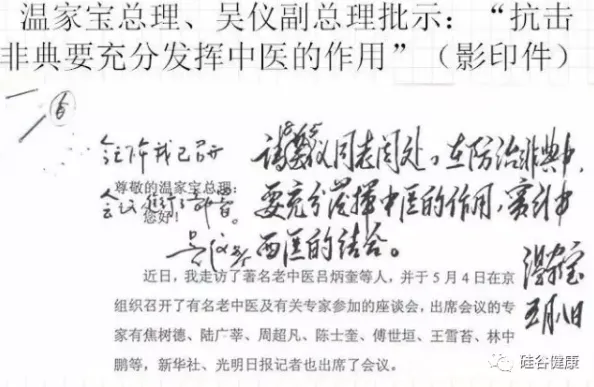 温家宝总理、吴仪副总理批示：“抗击
非典要充分发挥中医的作用”（影印件）
请吴仪同志阅处。在防治非典中，
要充分发挥中医的作用，实行中
西医的结合。
温家宝
五月八日
我已召开
会议进行了部署
吴仪
尊敬的温家宝总理：
您好！
近日，我走访了著名老中医吕炳奎等人，并于5月4日在京
组织召开了有名老中医及有关专家参加的座谈会，出席会议的专
家有焦树德、陆广莘、周超凡、陈士奎、傅世垣、王雪苔、林中
鹏等，新华社、光明日报记者也出席了会议。
硅谷健康